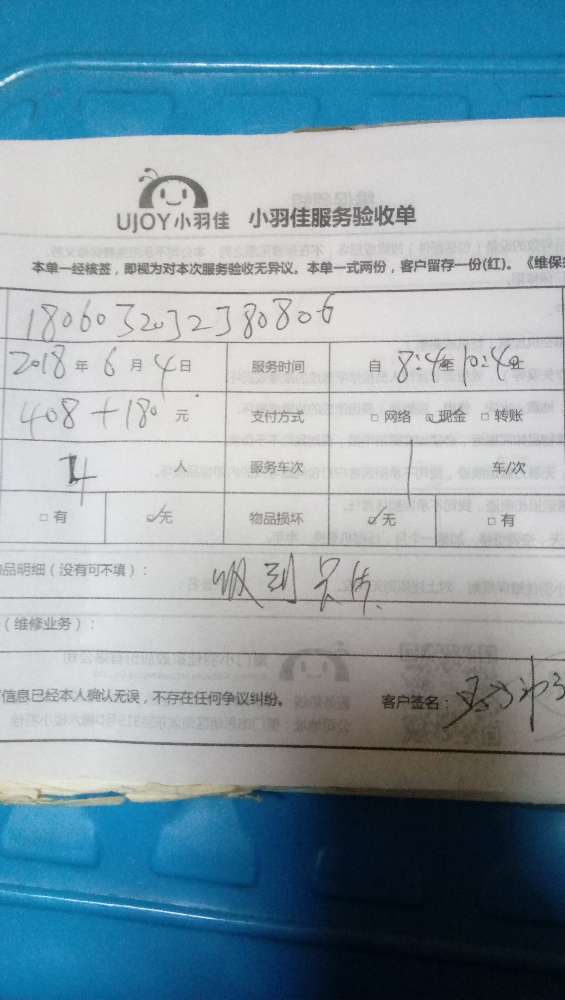 UJOY小羽佳 小羽佳服务验收单
本单一经核签，即视为对本次服务验收无异议。本单一式两份，客户留存一份(红)。《维保
1806032032380806
2018年6月4日 服务时间 自8:4 至10:4 止
408+180元 支付方式 □网络 ☑现金 □转账
4人 服务车次 1 车/次
□有 ☑无 物品损坏 ☑无 □有
品明细（没有可不填）：
（维修业务）：
信息已经本人确认无误，不存在任何争议纠纷。 客户签名：